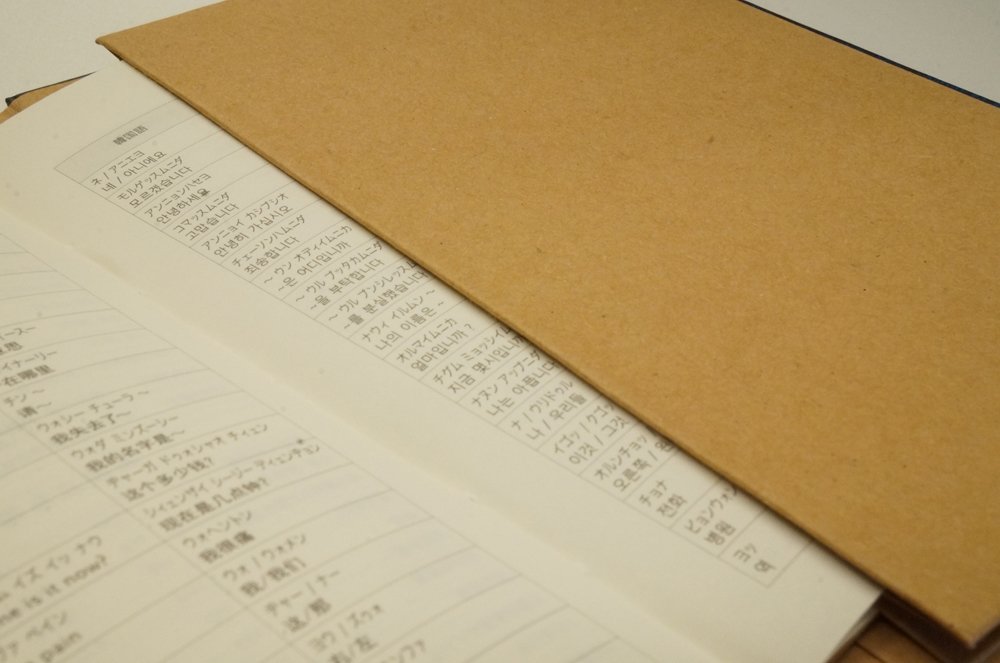 韓国語
ネ / アニエヨ
네 / 아니에요
モルゲッスムニダ
모르겠습니다
アンニョンハセヨ
안녕하세요
コマッスムニダ
고맙습니다
アンニョイ カシプシオ
안녕히 가십시오
チェーソンハムニダ
죄송합니다
~ ウン オディイムニカ
~은 어디입니까
~ ウル プッタカムニダ
~을 부탁합니다
~ ウル プンシレッスム
~를 분실했습니다
ナウィ イルムン ~
나의 이름은 ~
オルマイムニカ
얼마입니까?
チグム ミョッシイム
지금 몇시입니
ナヌン アップニダ
나는 아픕니다
ナ / ウリドゥル
나 / 우리들
イゴッ / クゴッ
이것 / 그것
オルンチョッ
오른쪽 /
チョナ
전화
ピョンウォン
병원
ヨッ
역
イナーリー
在哪里
チン ~
请~
ウォシー チューラ ~
我失去了~
ウォダ ミンズーシー
我的名字是~
チャーガ ドゥオシャオ チィェン
这个多少钱?
シィェンザイ シージー ディェンチョン
现在是几点钟?
ウォヘントン
我很痛
ウォ / ウォメン
我/我们
チャー / ナー
这/那
ヨウ / ズゥォ
右/左
イズ イッ ナウ
me is it now?
ペイン
pain